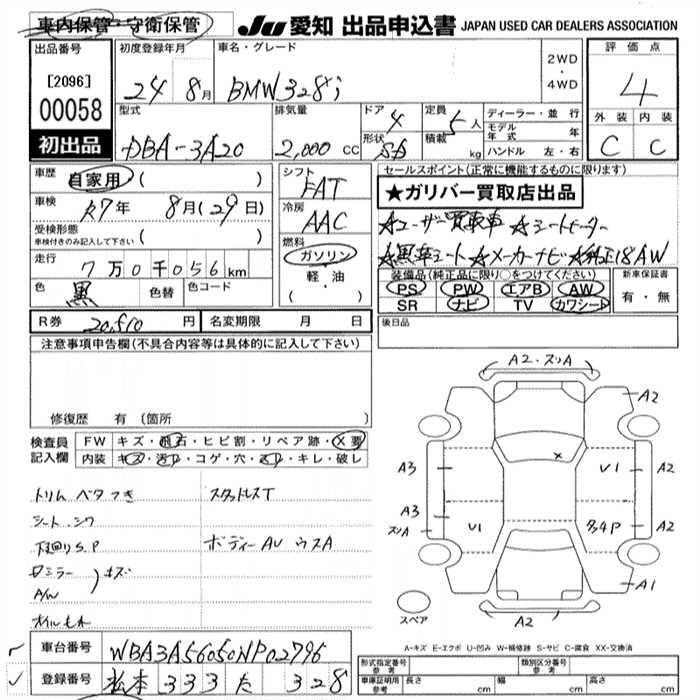 車内保管・守衛保管
JU 愛知 出品申込書 JAPAN USED CAR DEALERS ASSOCIATION
出品番号
[2096]
00058
初出品
初度登録年月
24 8月
車名・グレード
BMW328i
2WD
・
4WD
評価点
4
外装 内装
C C
型式
DBA-3A20
排気量
2,000 cc
ドア 4
形状 SD
定員 5人
積載 kg
ディーラー・並行
モデル年式 年
ハンドル 左・右
車歴
自家用 ( )
車検
R7年 8月(29日)
受検形態
車検付きのみ記入して下さい ( )
走行
7万0千056km
色
黒
色替
色コード
シフト
FAT
冷房
AAC
燃料
ガソリン
・軽・油
( )
セールスポイント(正常に機能するものに限ります)
★ガリバー買取店出品
☆ユーザー買取車 ☆シートヒーター
☆黒革シート ☆メーカーナビ ☆純正18AW
装備品(純正品に限り○をつけてください)
PS PW エアB AW
SR ナビ TV カワシート
新車保証書
有・無
R券 20,510 円
名変期限 月 日
後日品
注意事項申告欄(不具合内容等は具体的に記入して下さい)
修復歴 有 (箇所
検査員
記入欄
FW キズ・飛石・ヒビ割・リペア跡・X要
内装 キズ・汚れ・コゲ・穴・スレ・キレ・破レ
トリム ベタつき スタッドレスT
シート シワ
下廻りS.P ボディーAU ウスA
ミラー
A/W
キズ
オイルモレ
A2・スリA
A2
A3
V1
A2
x
A3
スリA
U1
A2
A1
A2
スペア
A-キズ E-エクボ U-凹み W-補修跡 S-サビ C-腐食 XX-交換済
車台番号
WBA3A56050NP02796
登録番号
松本 333 た 328
形式指定番号
参考
類別区分番号
参考
車庫証明用
参考
長さ cm
幅 cm
高さ cm